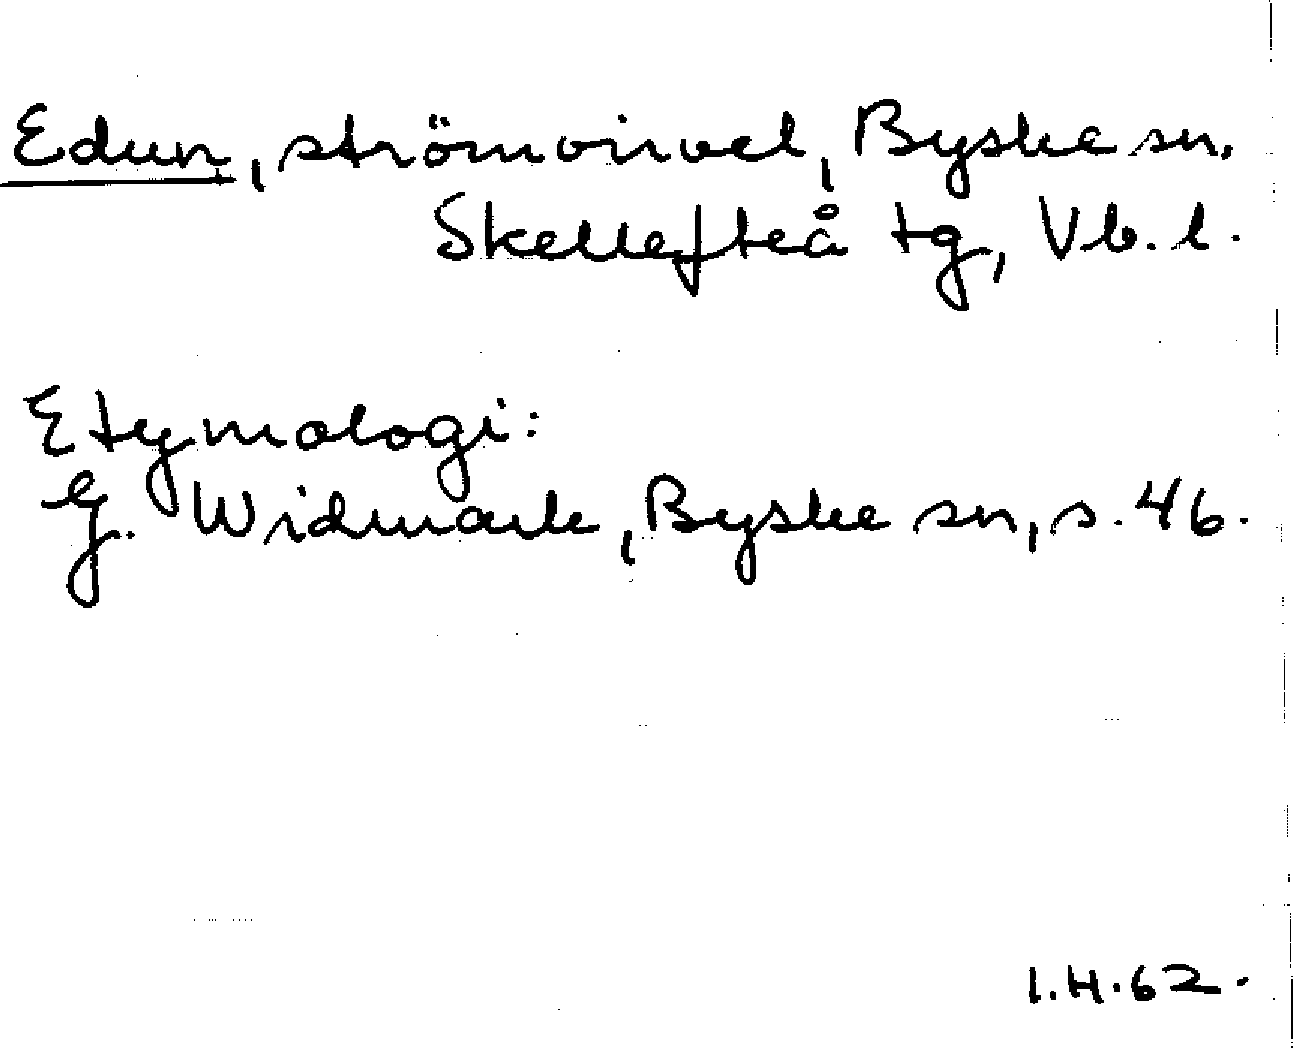 Edun, strömvirvel, Byske sn.
Skellefteå tg, Vb. l.
Etymologi:
G. Widmark, Byske sn, s. 46.
I.H.62.